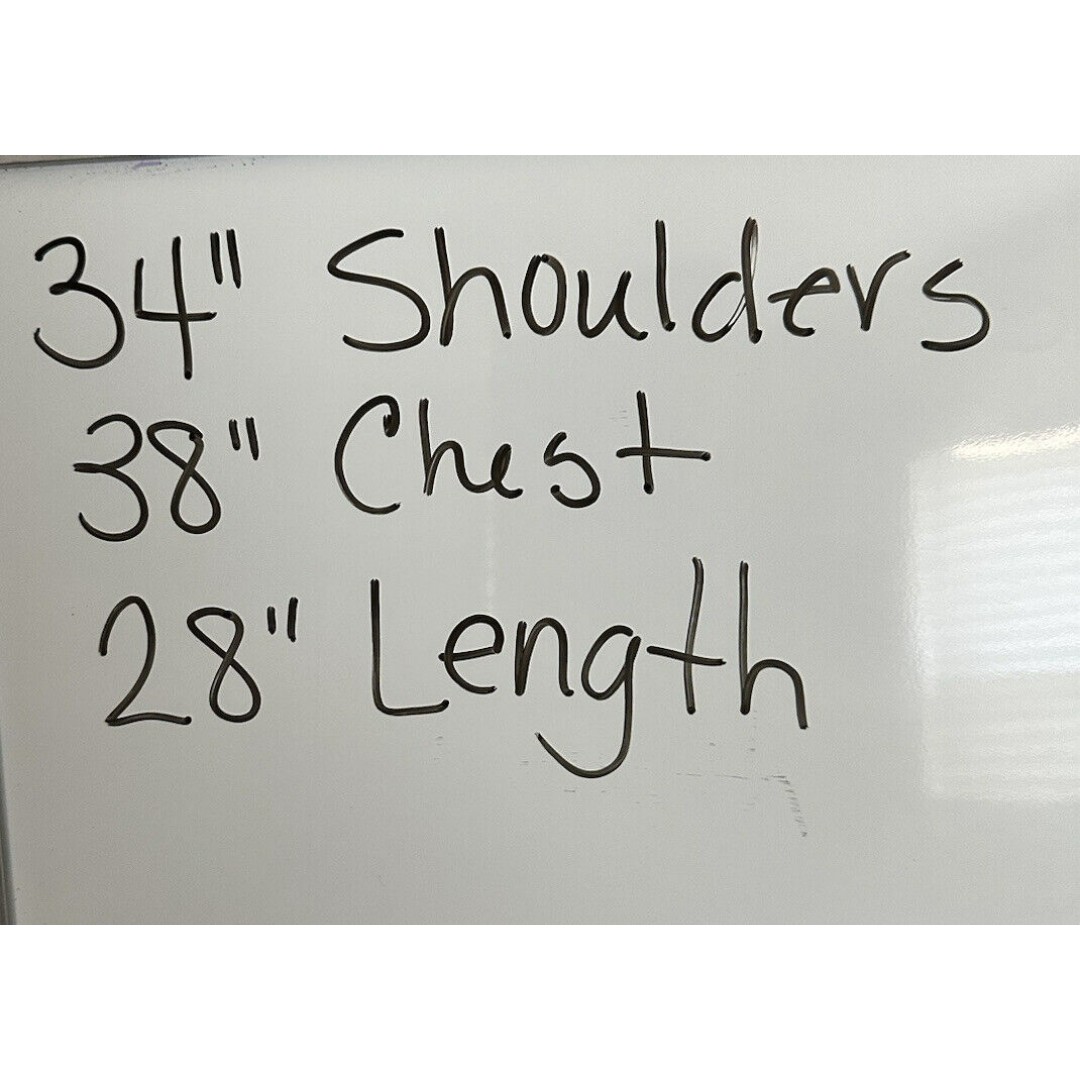 34" Shoulders
38" Chest
28" Length